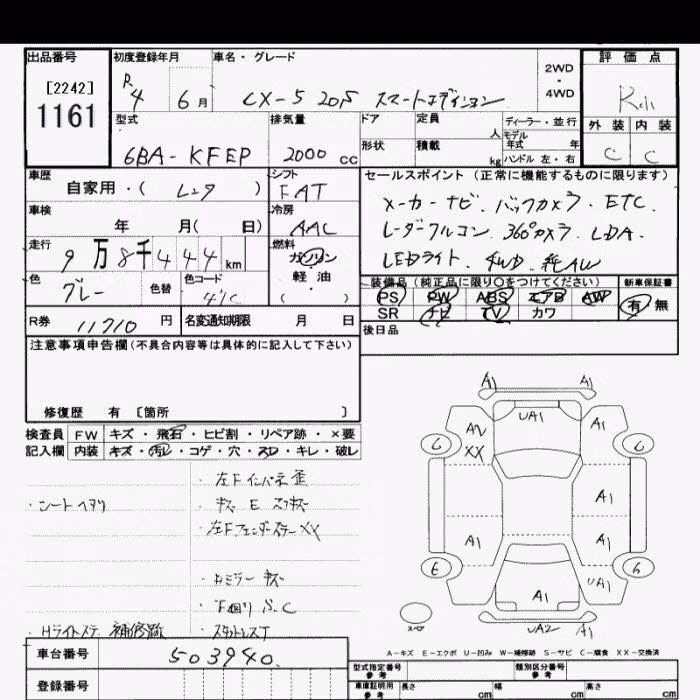 出品番号
[2242]
1161
初度登録年月
R4 6月
車名・グレード
CX-5 20S スマートエディション
2WD・4WD
評価点
外装 内装
C C
型式
6BA-KFEP
排気量
2000 cc
ドア 定員 人
形状 積載 kg
ディーラー・並行
モデル年式 年
ハンドル 左・右
車歴
自家用・( レンタ )
シフト
FAT
車検
年 月( 日)
冷房
AAC
走行
9万8千444 km
燃料
ガソリン
軽油・
( )
色
グレー
色替
色コード
46C
R券 11710 円
名変通知期限 月 日
セールスポイント(正常に機能するものに限ります)
メーカーナビ、バックカメラ、ETC、
レーダークルコン、360°カメラ、LDA、
LEDライト、4WD、純AW
装備品(純正品に限り○をつけてください)
PS PW ABS エアB AW
SR ナビ TV カワ
新車保証書
有・無
後日品
注意事項申告欄(不具合内容等は具体的に記入して下さい)
修復歴 有 [箇所 ]
検査員記入欄
FW キズ・飛石・ヒビ割・リペア跡・×要
内装 キズ・汚レ・コゲ・穴・スレ・キレ・破レ
・シートヘタリ
・Hライトステ 補修跡
・左Fインパネ歪
・キズ E スリキズ
・左Fフェンダーステー XX
・ロミラー キズ
・下廻り S、C
・スタットレスT
A1 A1
UA1
A2 A1
XX
A1
A1 A1
A1 UA1
UA2 A1
C C
6 6
スペア
A-キズ E-エクボ U-凹み W-補修跡 S-サビ C-腐食 XX-交換済
車台番号 503940
登録番号
型式指定番号 類別区分番号
車庫証明用参考 長さ cm 幅 cm 高さ cm